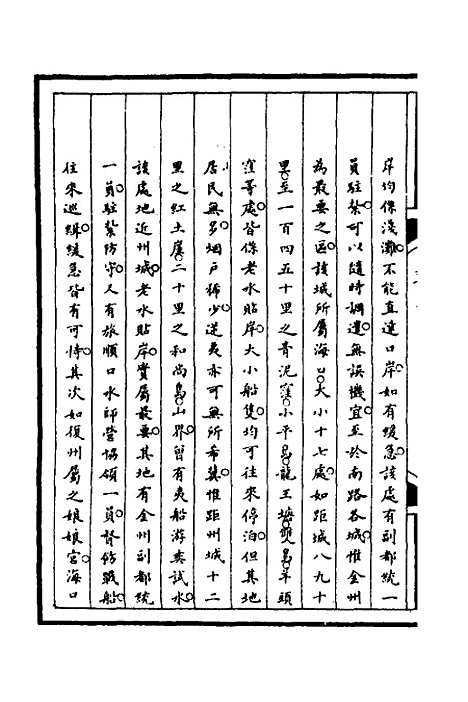 岸均係淺灘不能直達口岸如有緩急該處有副都統一
員駐紥可以隨時調遣無誤機宜至於南路各城惟金州
為最要之區該城所屬海口大小十七處如距城八九十
里至一百四五十里之青泥窪小平島龍王塘雙島羊頭
窪等處皆係老水貼岸大小船隻均可往來停泊但其地
居民無多烟戶稀少逆夷亦可無所希冀惟距州城十二
里之紅土崖二十里之和尚島山界曾有夷船游奕試水
該處地近州城老水貼岸實屬最要其地有金州副都統
一員駐紥防守又有旅順口水師營協領一員督飭戰船
往來巡緝緩急皆有可恃其次如復州屬之娘娘宮海口